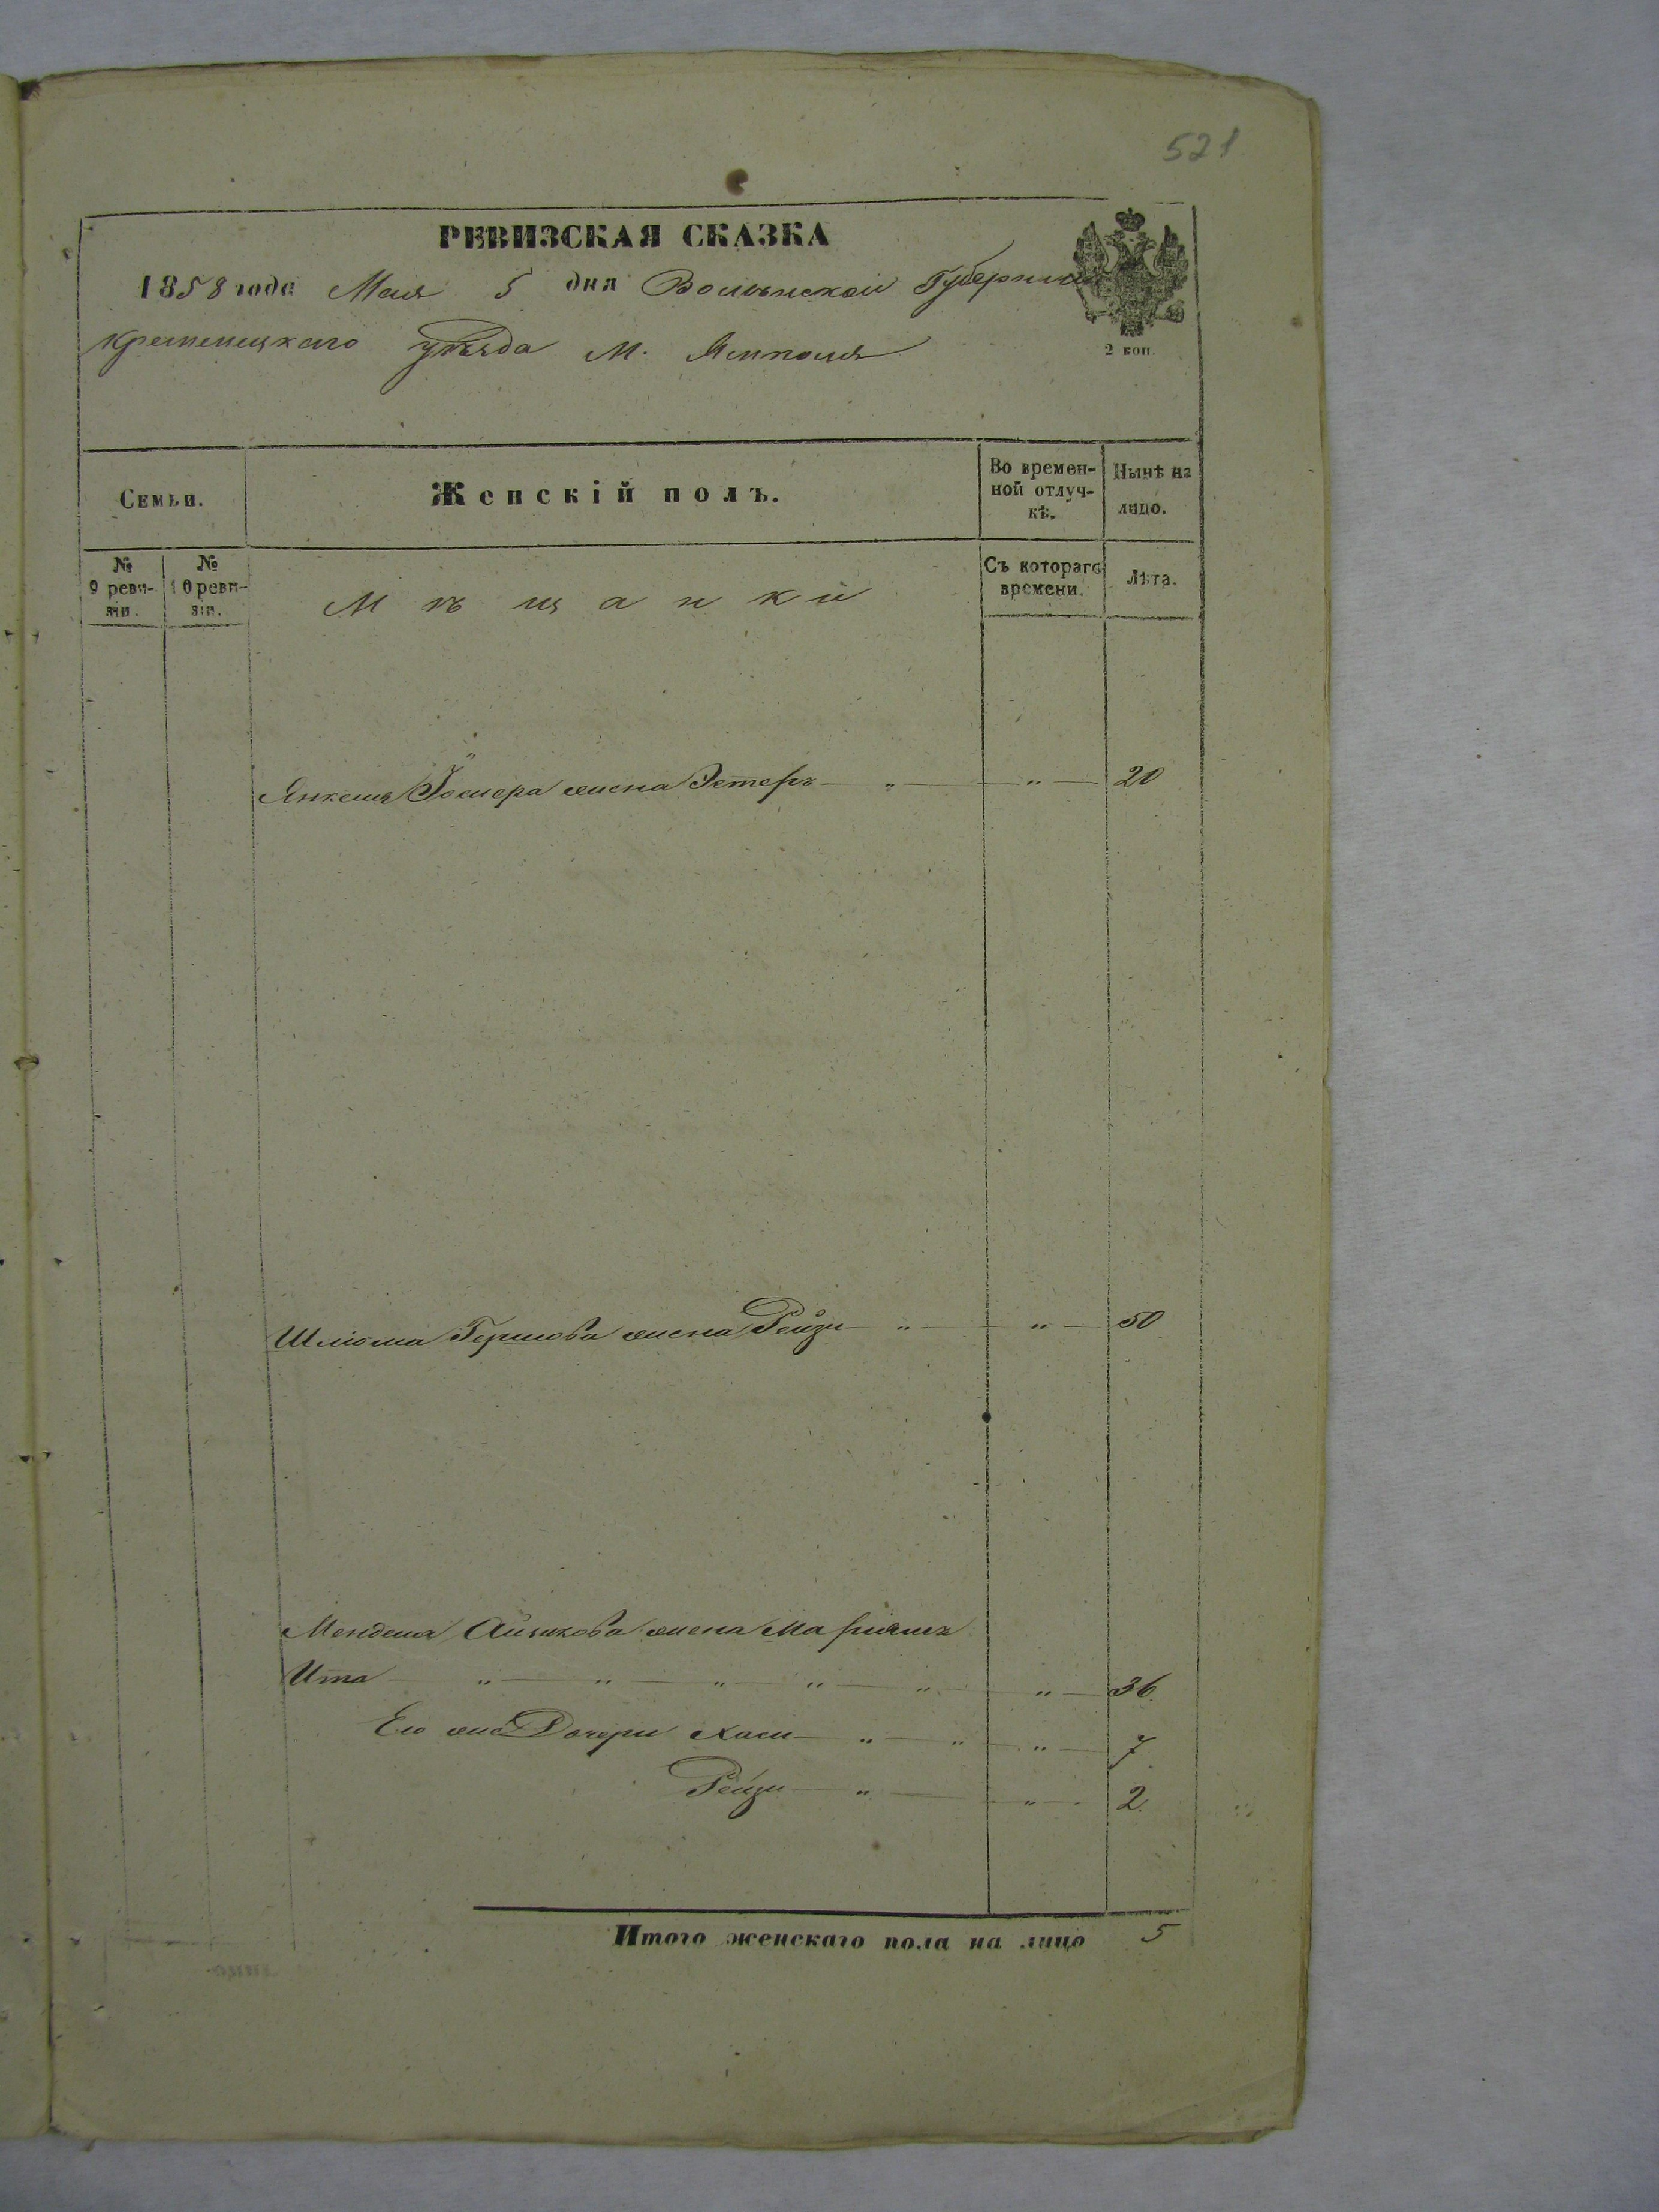 521
РЕВИЗСКАЯ СКАЗКА
1858 года Мая 5 дня Волынской Губернии
Кременецкаго уѣзда М. Ямполя
2 коп.
Семьи.
Женскій полъ.
Во времен-
ной отлуч-
кѣ.
Нынѣ на
лицо.
№
9 реви-
зіи.
№
10 реви-
зіи.
Мѣщанки
Съ котораго
времени.
Лѣта.
Янкеля Іосиера жена Эстеръ — " — " — 20
Шлиома Гершова жена Рейзи — " — " — 50
Менделя Айзикова жена Маріямъ
Ита — " — " — " — " — " — " — 36
Его же Дочери Хаси — " — " — " — 7
Рейзи — " — " — 2.
Итого женскаго пола на лицо 5